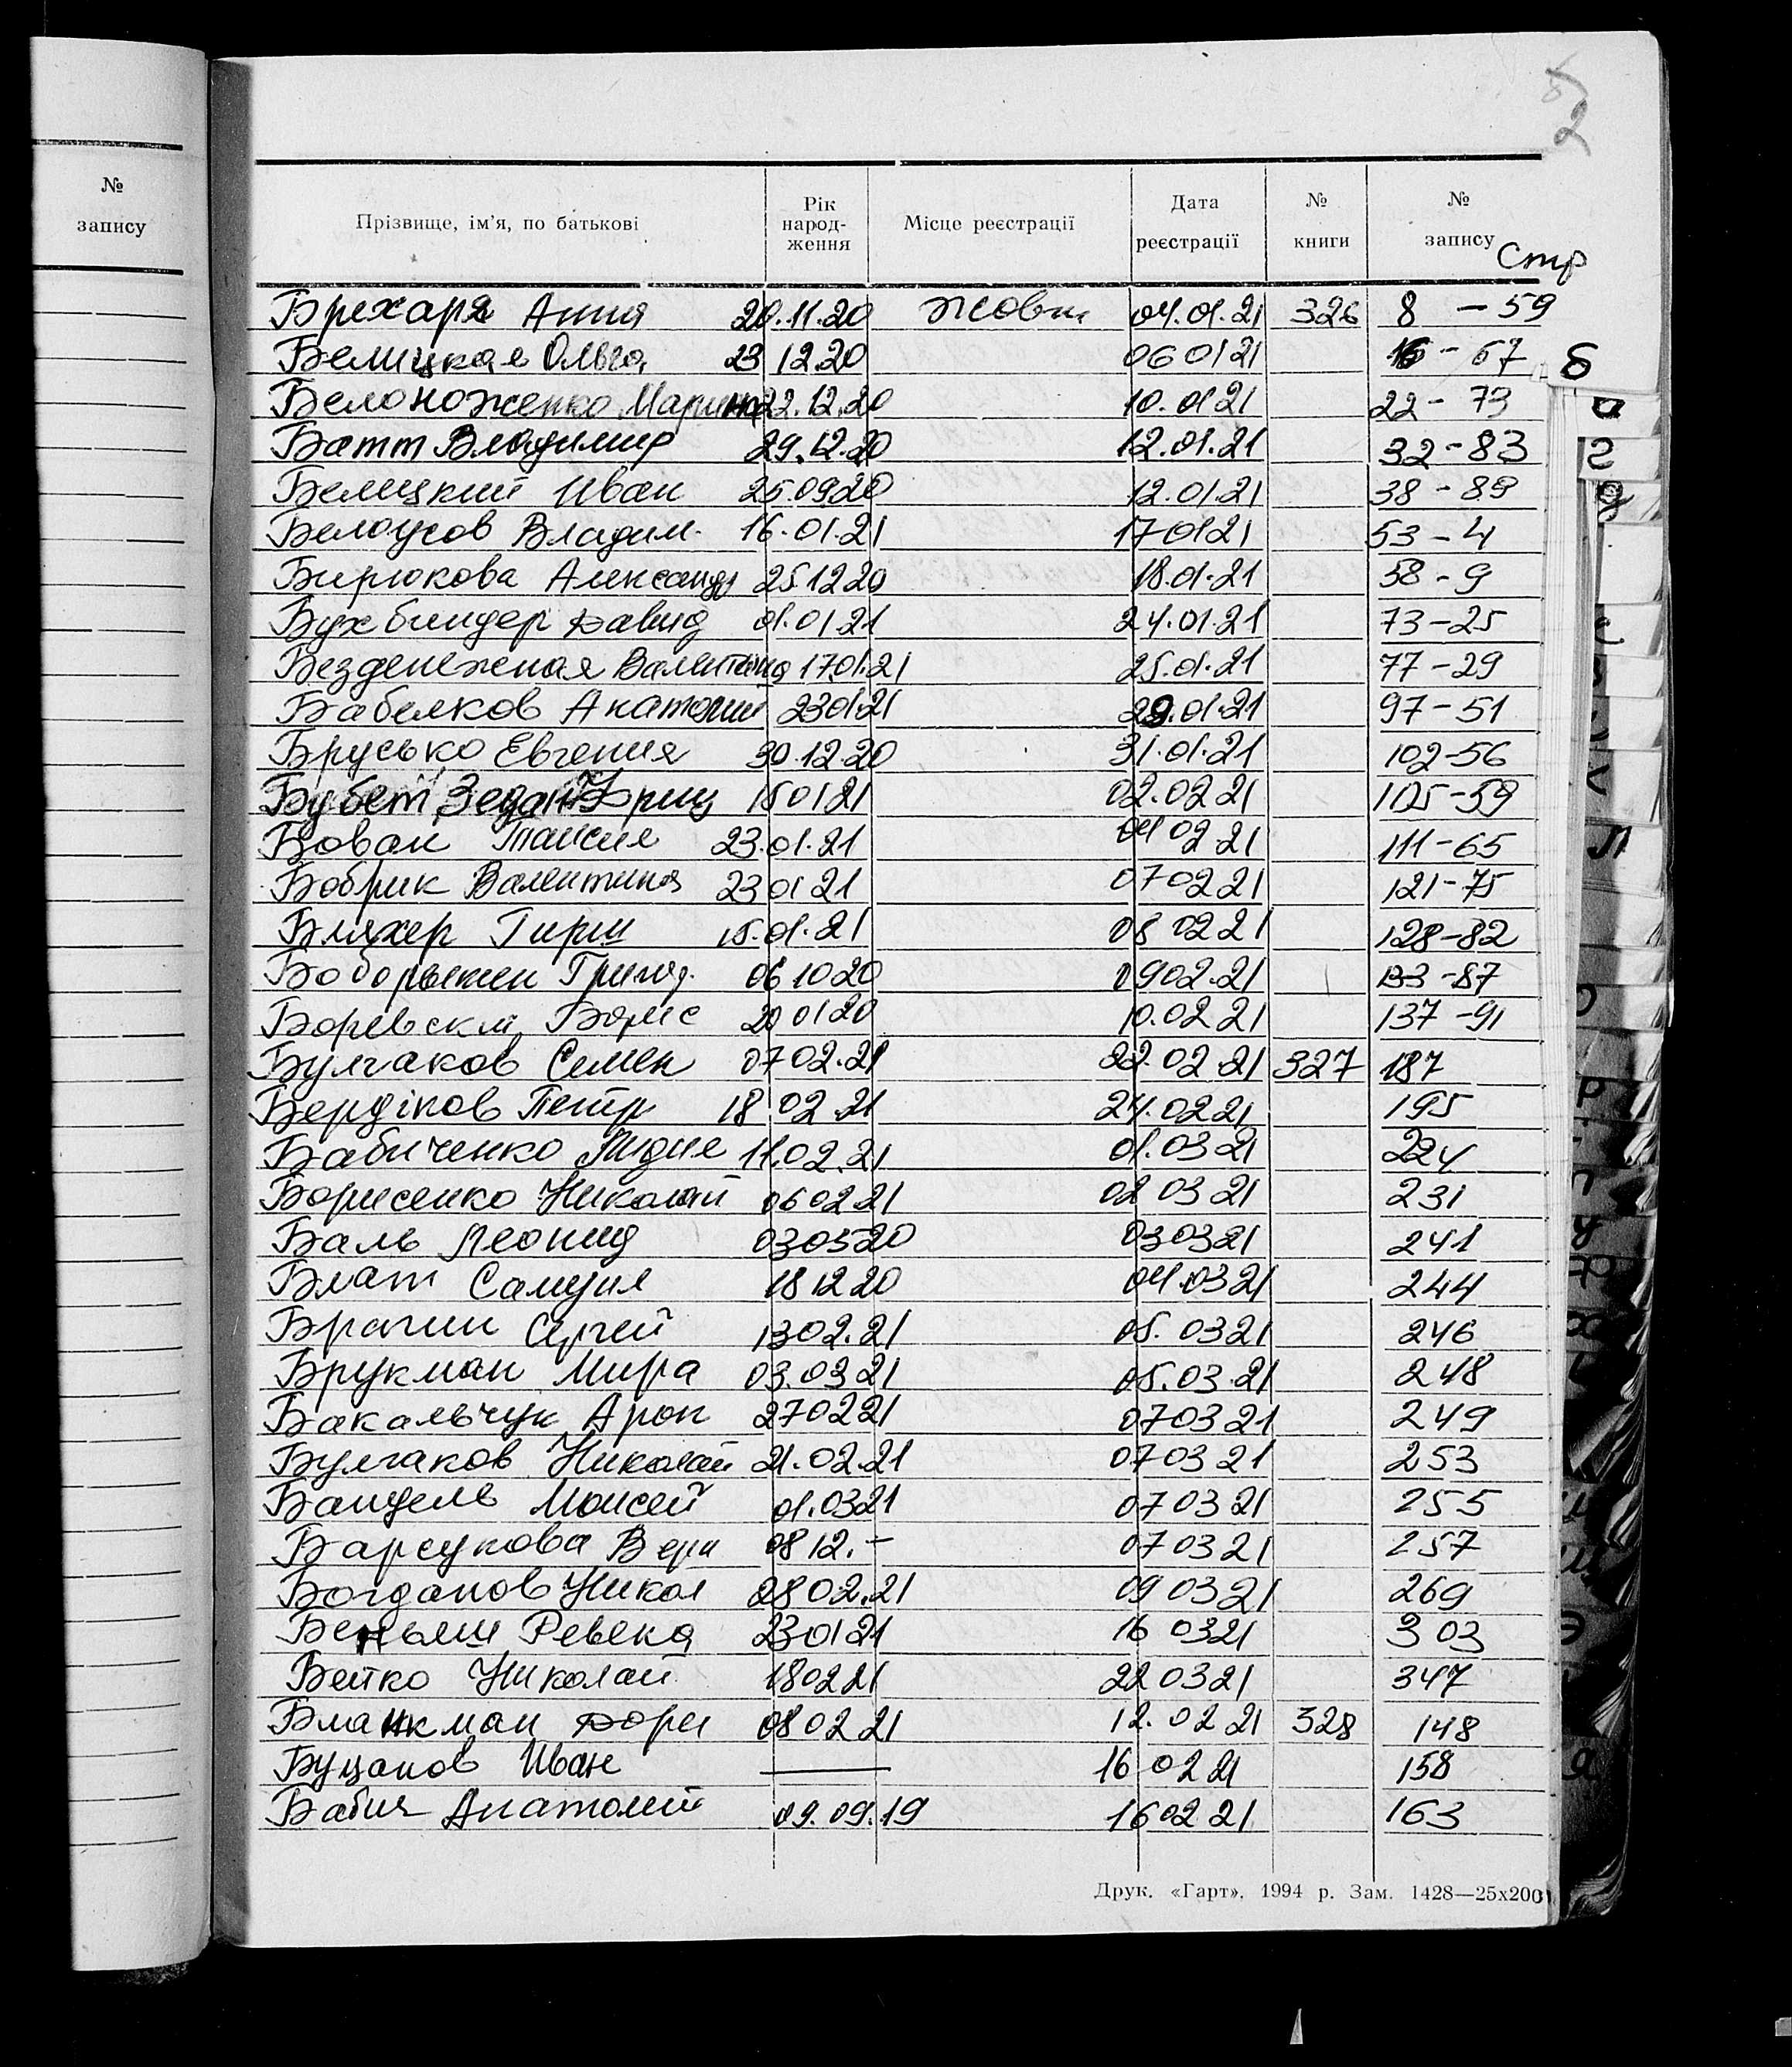 №
запису
2
Прізвище, ім'я, по батькові Рік народ-ження Місце реєстрації Дата реєстрації № книги № запису Стр
Брехаря Анна 20.11.20 Жовтн 04.01.21 326 8 - 59
Белицкая Ольга 23 12.20 06 01 21 16 - 67
Белоноженко Марина 22.12.20 10.01 21 22 - 73
Батт Владимир 29.12.20 12.01.21 32 - 83
Белецкий Иван 25.09.20 12.01.21 38 - 89
Белоусов Владим. 16.01.21 17 01 21 53 - 4
Бирюкова Александр 25 12 20 18.01.21 58 - 9
Бухбиндер Давид 01.01.21 24.01.21 73 - 25
Безденежная Валентина 17.01.21 25.01.21 77 - 29
Бабелков Анатолий 23 01 21 29.01.21 97 - 51
Брусько Евгения 30.12.20 31.01.21 102-56
Фриц 15 01 21 02.02 21 105-59
Бован Таисия 23.01.21 04 02 21 111-65
Бобрик Валентина 23 01 21 07 02 21 121-75
Бляхер Гирш 15.01.21 08 02 21 128-82
Григор. 06 10 20 09 02.21 133-87
Борис 20 01 20 10.02 21 137-91
Булгаков Семен 07 02.21 22.02 21 327 187
Бердіков Петр 18 02 21 24.02 21 195
Бабиченко Лидия 11.02.21 01.03 21 224
Борисенко Николай 06 02 21 02 03 21 231
Баль Леонид 03 05 20 03 03 21 241
Блат Самуил 18 12 20 04.03 21 244
Брагин Сергей 13 02.21 05.03 21 246
Брукман Мира 03.03 21 05.03.21 248
Бакальчук Арон 27 02 21 07 03 21 249
Булгаков Николай 21.02.21 07 03 21 253
Бандель Моисей 01.03 21 07 03 21 255
Барсукова Вера 08 12.- 07 03 21 257
Богданов Никол 28 02.21 09 03 21 269
Беньяш Ревека 23 01 21 16 03 21 303
Бейко Николай 18 02 21 22 03 21 347
Бланкман Дора 08 02 21 12.02 21 328 148
Буцанов Иван — 16 02 21 158
Бабич Анатолий 09.09.19 16 02 21 163
Друк. «Гарт», 1994 р. Зам. 1428—25х200
Б